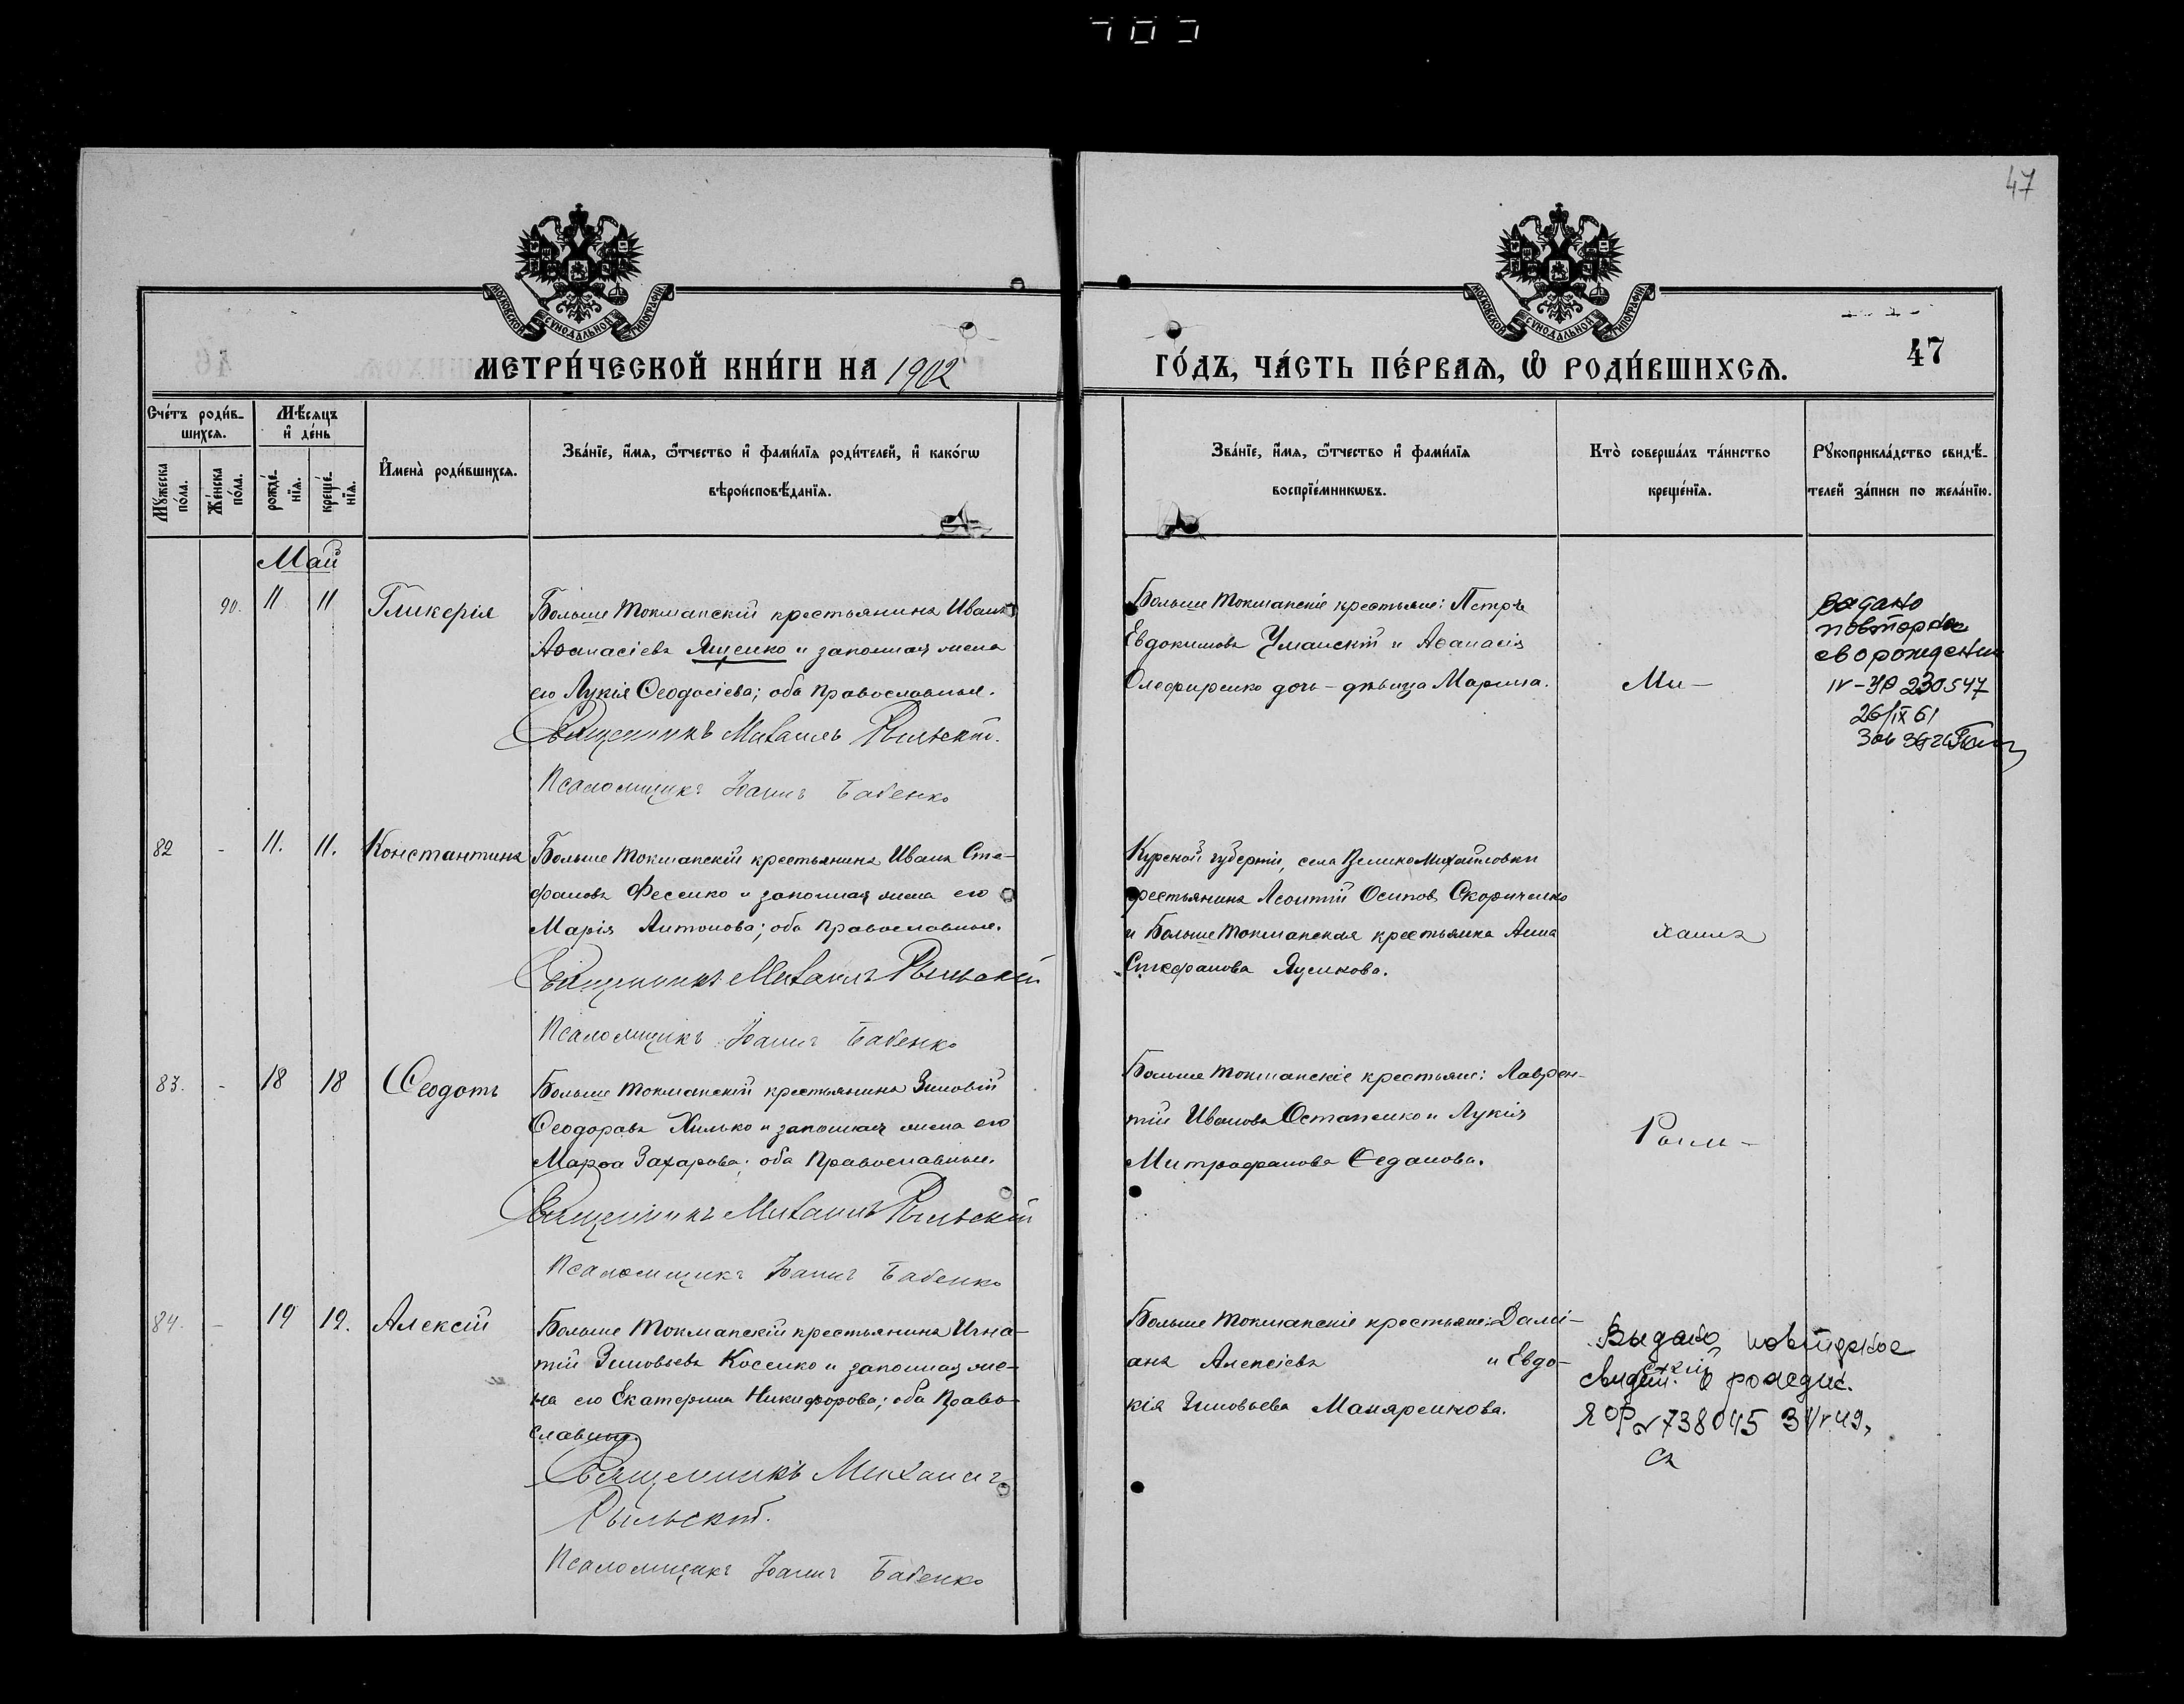 47
МОСКОВСКОЙ СѴНОДАЛЬНОЙ ТИПОГРАФІИ
МОСКОВСКОЙ СѴНОДАЛЬНОЙ ТИПОГРАФІИ
МЕТРИ́ЧЕСКОЙ КНИ́ГИ НА 1902
ГО́ДЪ, ЧА́СТЬ ПЕ́РВАѦ, Ѽ РОДИ́ВШИХСѦ.
47
Сче́тъ роди́в-
шихсѧ.
Мꙋжеска по́ла.
Же́нска по́ла.
Мѣ́сѧцъ и҆ де́нь
рожде́-нїѧ.
креще́-нїѧ.
И҆мена̀ роди́вшихсѧ.
Зва́нїе, и҆́мѧ, ѻ҆́тчество и҆ фами́лїѧ роди́телей, и҆ како́гѡ
вѣроисповѣ́данїѧ.
Зва́нїе, и҆́мѧ, ѻ҆́тчество и҆ фами́лїѧ
воспрїе́мникѡвъ.
Кто̀ соверша́лъ та́инство
креще́нїѧ.
Рꙋкоприкла́дство свидѣ́-
телей за́писи по жела́нїю.
Май
90. 11 11 Гликерія
Больше Токмакскій крестьянинъ Иванъ
Аѳанасіевъ Ященко и законная жена
его Лукія Ѳеодосіева; оба Православные.
Священникъ Михаилъ Рыльскій.
Псаломщикъ Іоаннъ Бабенко
Больше Токмакскіе крестьяне: Петръ
Евдокимовъ Уманскій и Аѳанасія
Олефиренко дочь - дѣвица Марина.
Ми-
Видано
повторне
св о рождении
IV-УР 230547
26/IX 61
82 - 11. 11. Константинъ
Больше Токмакскій крестьянинъ Иванъ Сте-
фановъ Фесенко и законная жена его
Марія Антонова; оба Православные.
Священникъ Михаилъ Рыльскій
Псаломщикъ Іоаннъ Бабенко
Курской губерніи, села ВеликоМихайловки
крестьянинъ Леонтій Осиповъ Скориченко
и Больше Токмакская крестьянка Анна
Стефанова Яценкова.
хаилъ
83. - 18 18 Ѳеодотъ
Больше Токмакскій крестьянинъ Зиновій
Ѳеодоровъ Хилько и законная жена его
Марѳа Захарова; оба Православные.
Священникъ Михаилъ Рыльскій
Псаломщикъ Іоаннъ Бабенко
Больше Токмакскіе крестьяне: Лаврен-
тій Ивановъ Остапенко и Лукія
Митрофанова Седанова.
Рыль-
84. - 19 19. Алексій
Больше Токмакскій крестьянинъ Игна-
тій Зиновьевъ Косенко и законная же-
на его Екатерина Никифорова; оба Право-
славные.
Священникъ Михаилъ
Рыльскій.
Псаломщикъ Іоаннъ Бабенко
Больше Токмакскіе крестьяне: Дамі-
анъ Алексіевъ и Евдо-
кія Зиновьева Маляренкова.
скій
Выдано повторное
о рожден.
738045